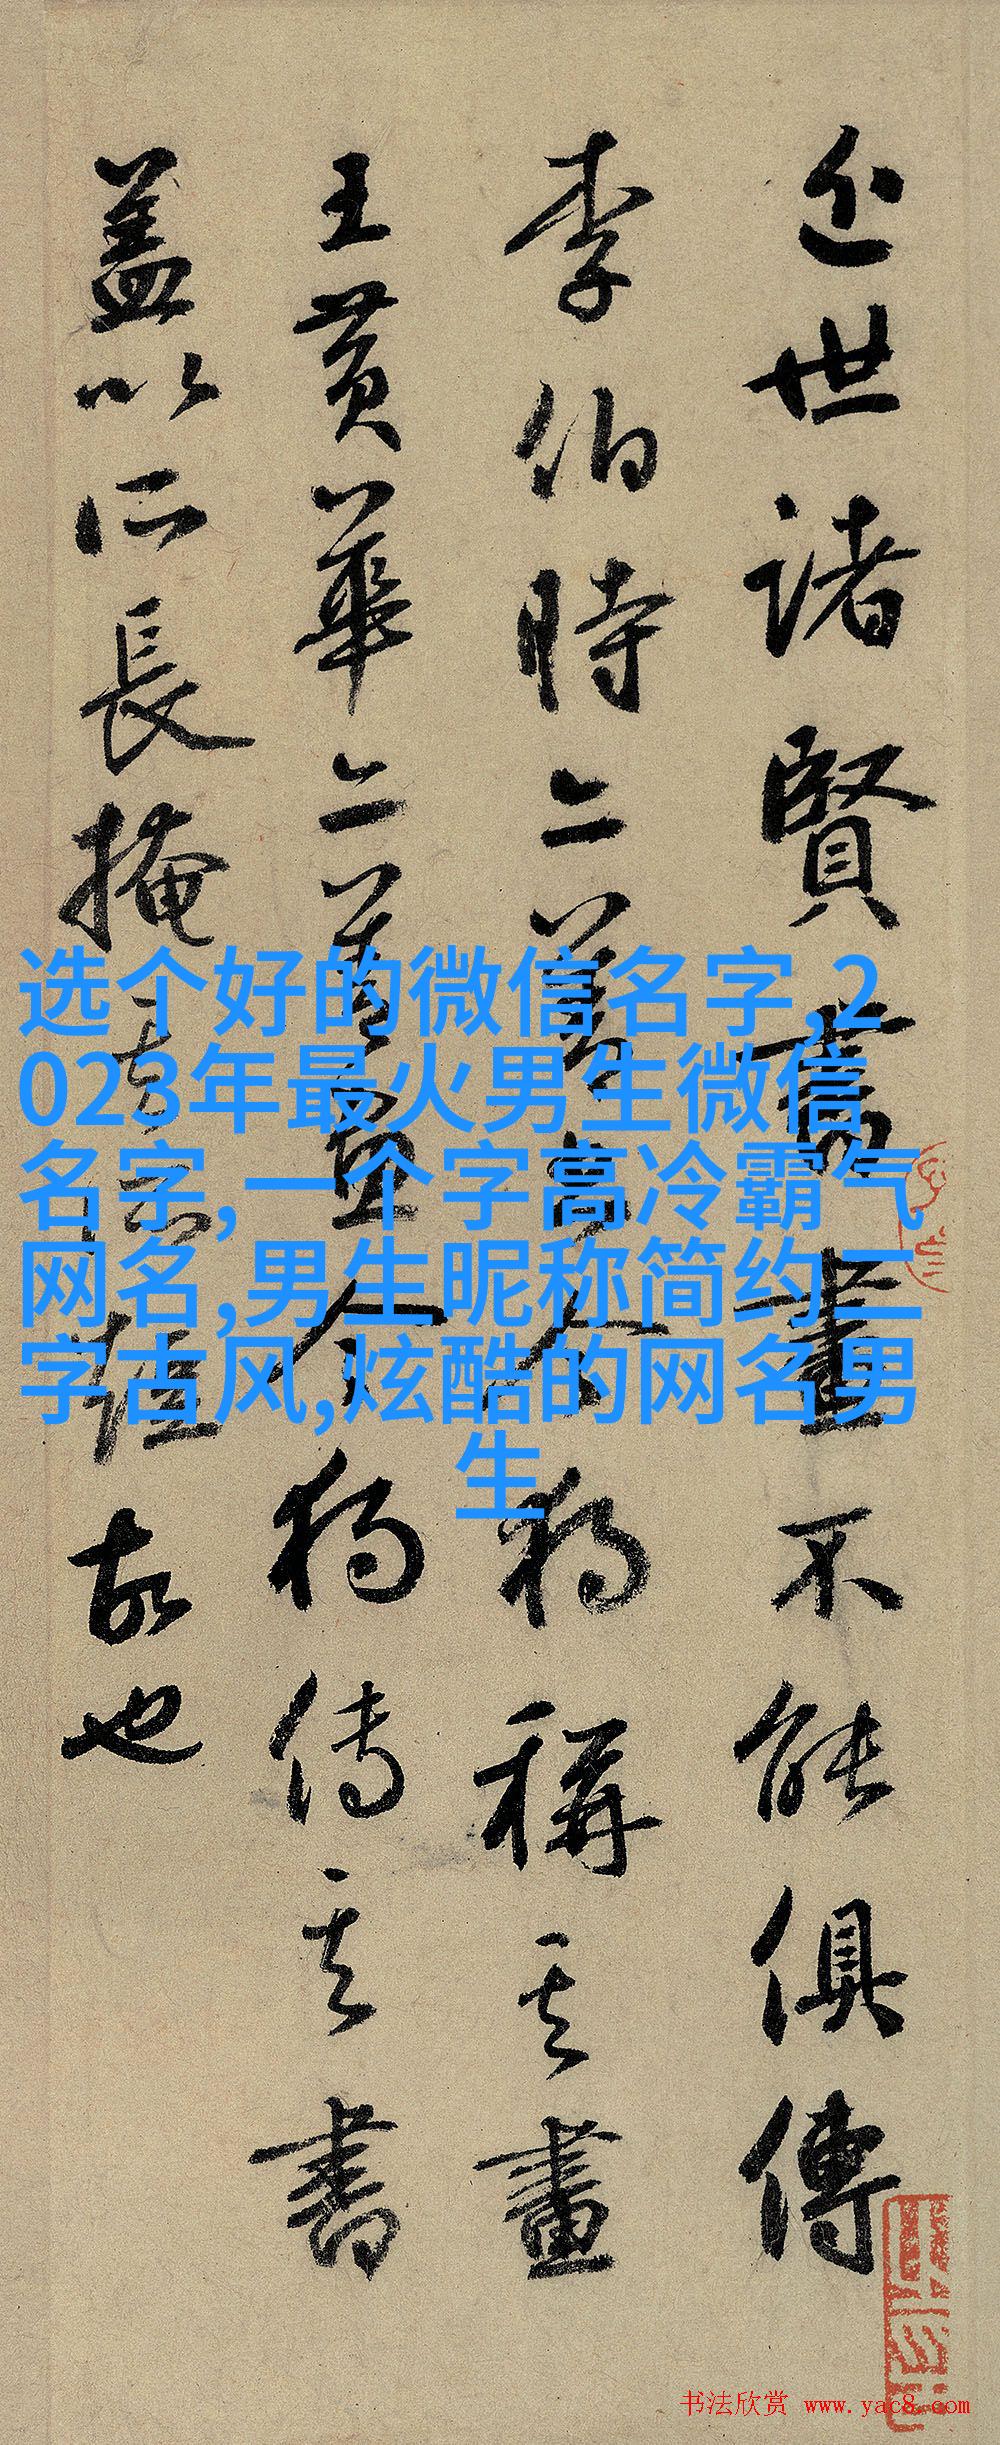 近世诸賢書畫不能俱傳
李伯時二善畫今獨稱其畫
王黄華二善書畫今獨傳其書
盖以所長掩其所短故也
选个好的微信名字,2
023年最火男生微信
名字,一个字高冷霸气
网名,男生昵称简约二
字古风,炫酷的网名男
生
书法欣赏 www.yac8.com